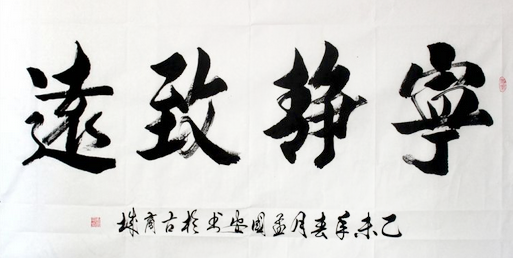 寧静致遠
乙未年春月孟國书於古商城